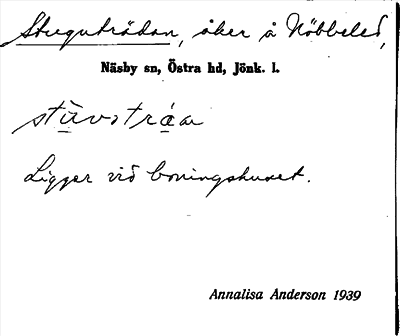 Stuguträdan, åker å Nöbbeled,
Näsby sn, Östra hd, Jönk. l.
stùvstráa
Ligger vid boningshuset.
Annalisa Anderson 1939